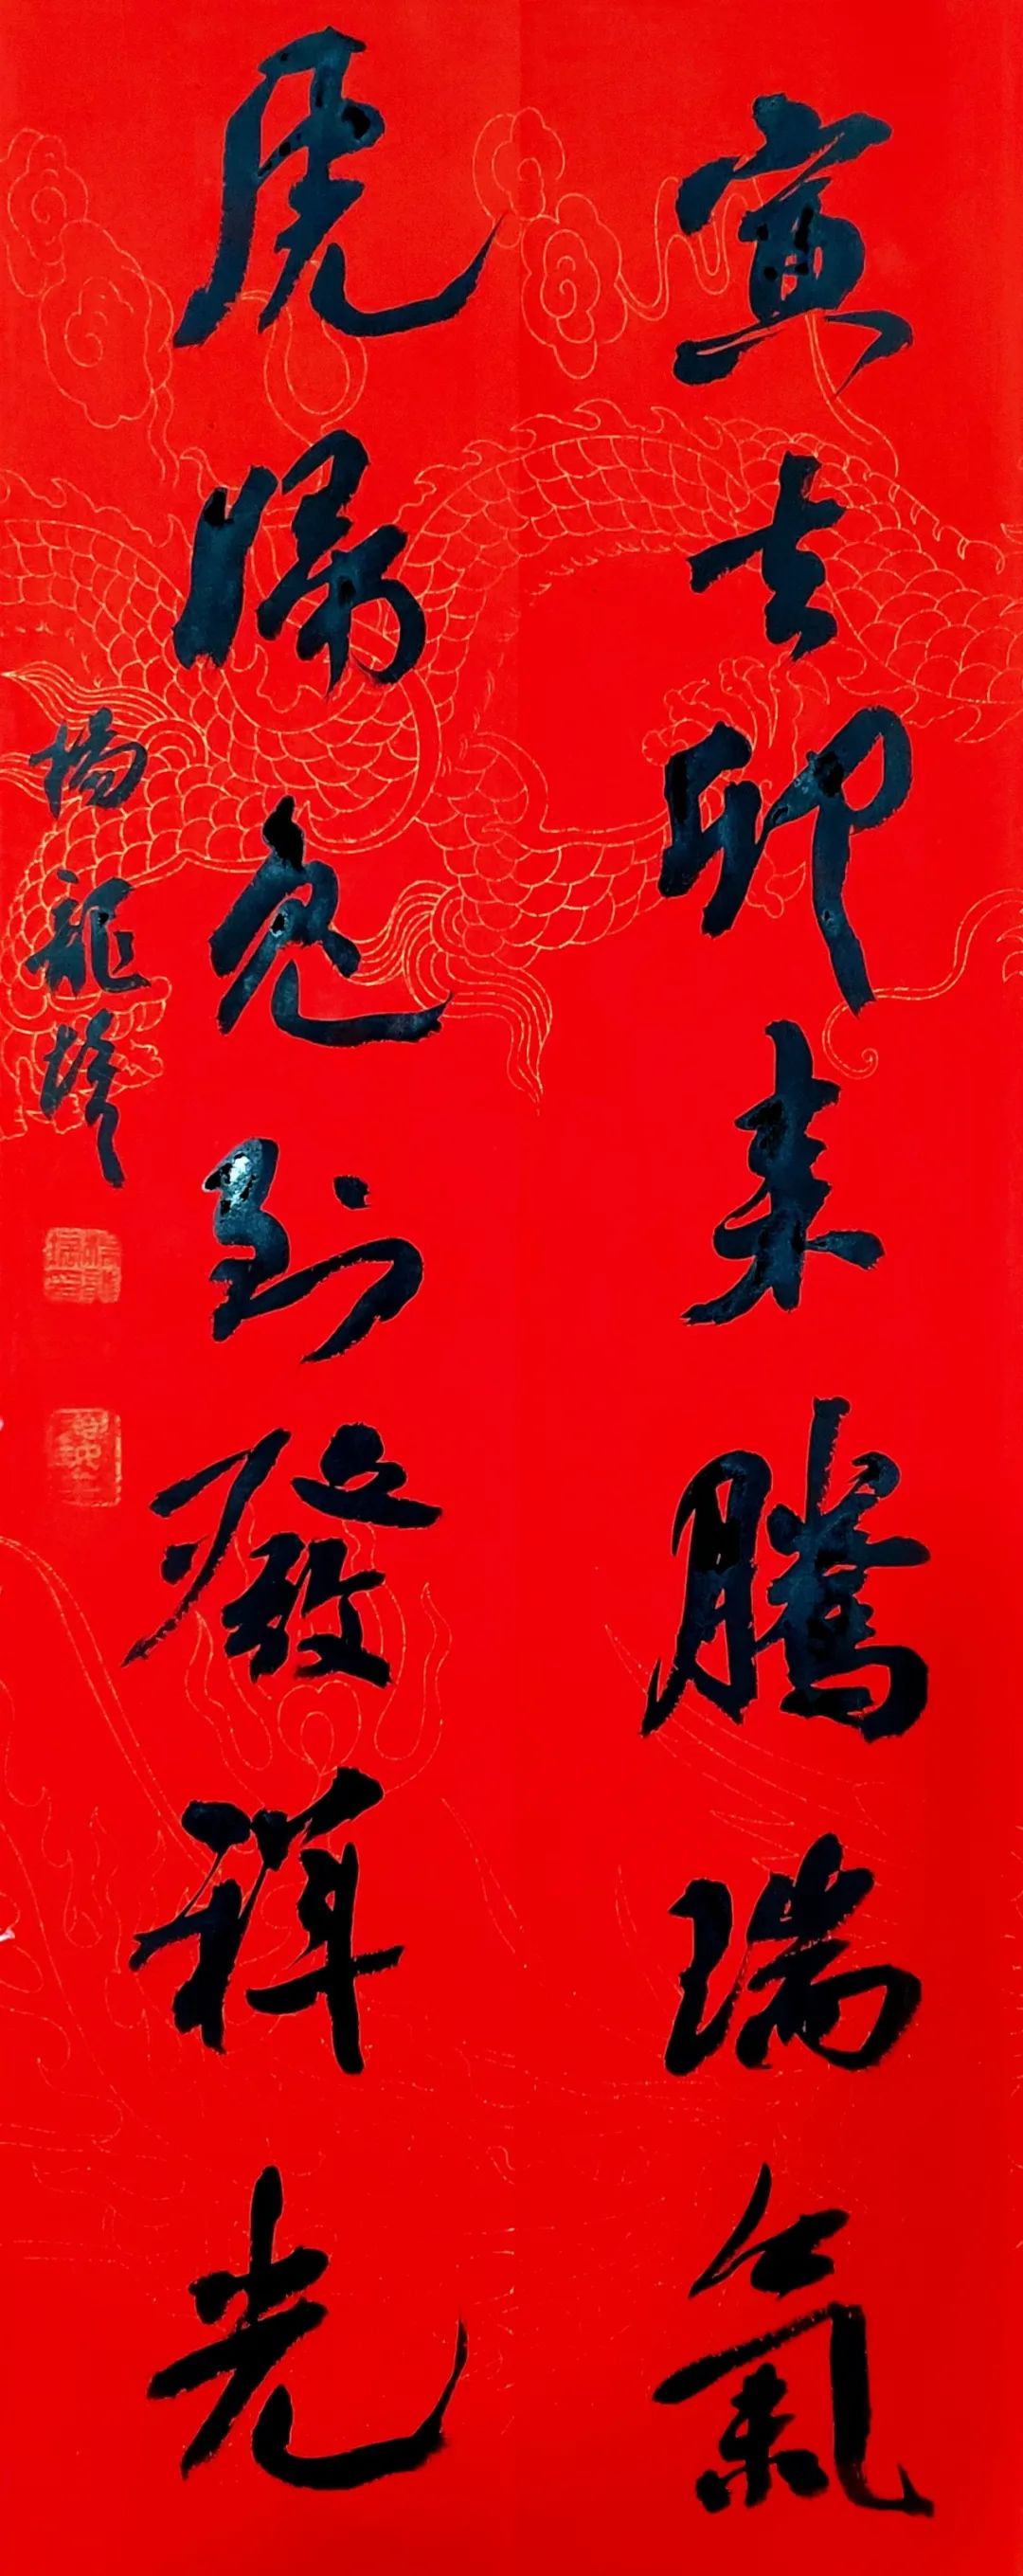 寅去卯来騰瑞氣
虎歸兔到發祥光
楊龍